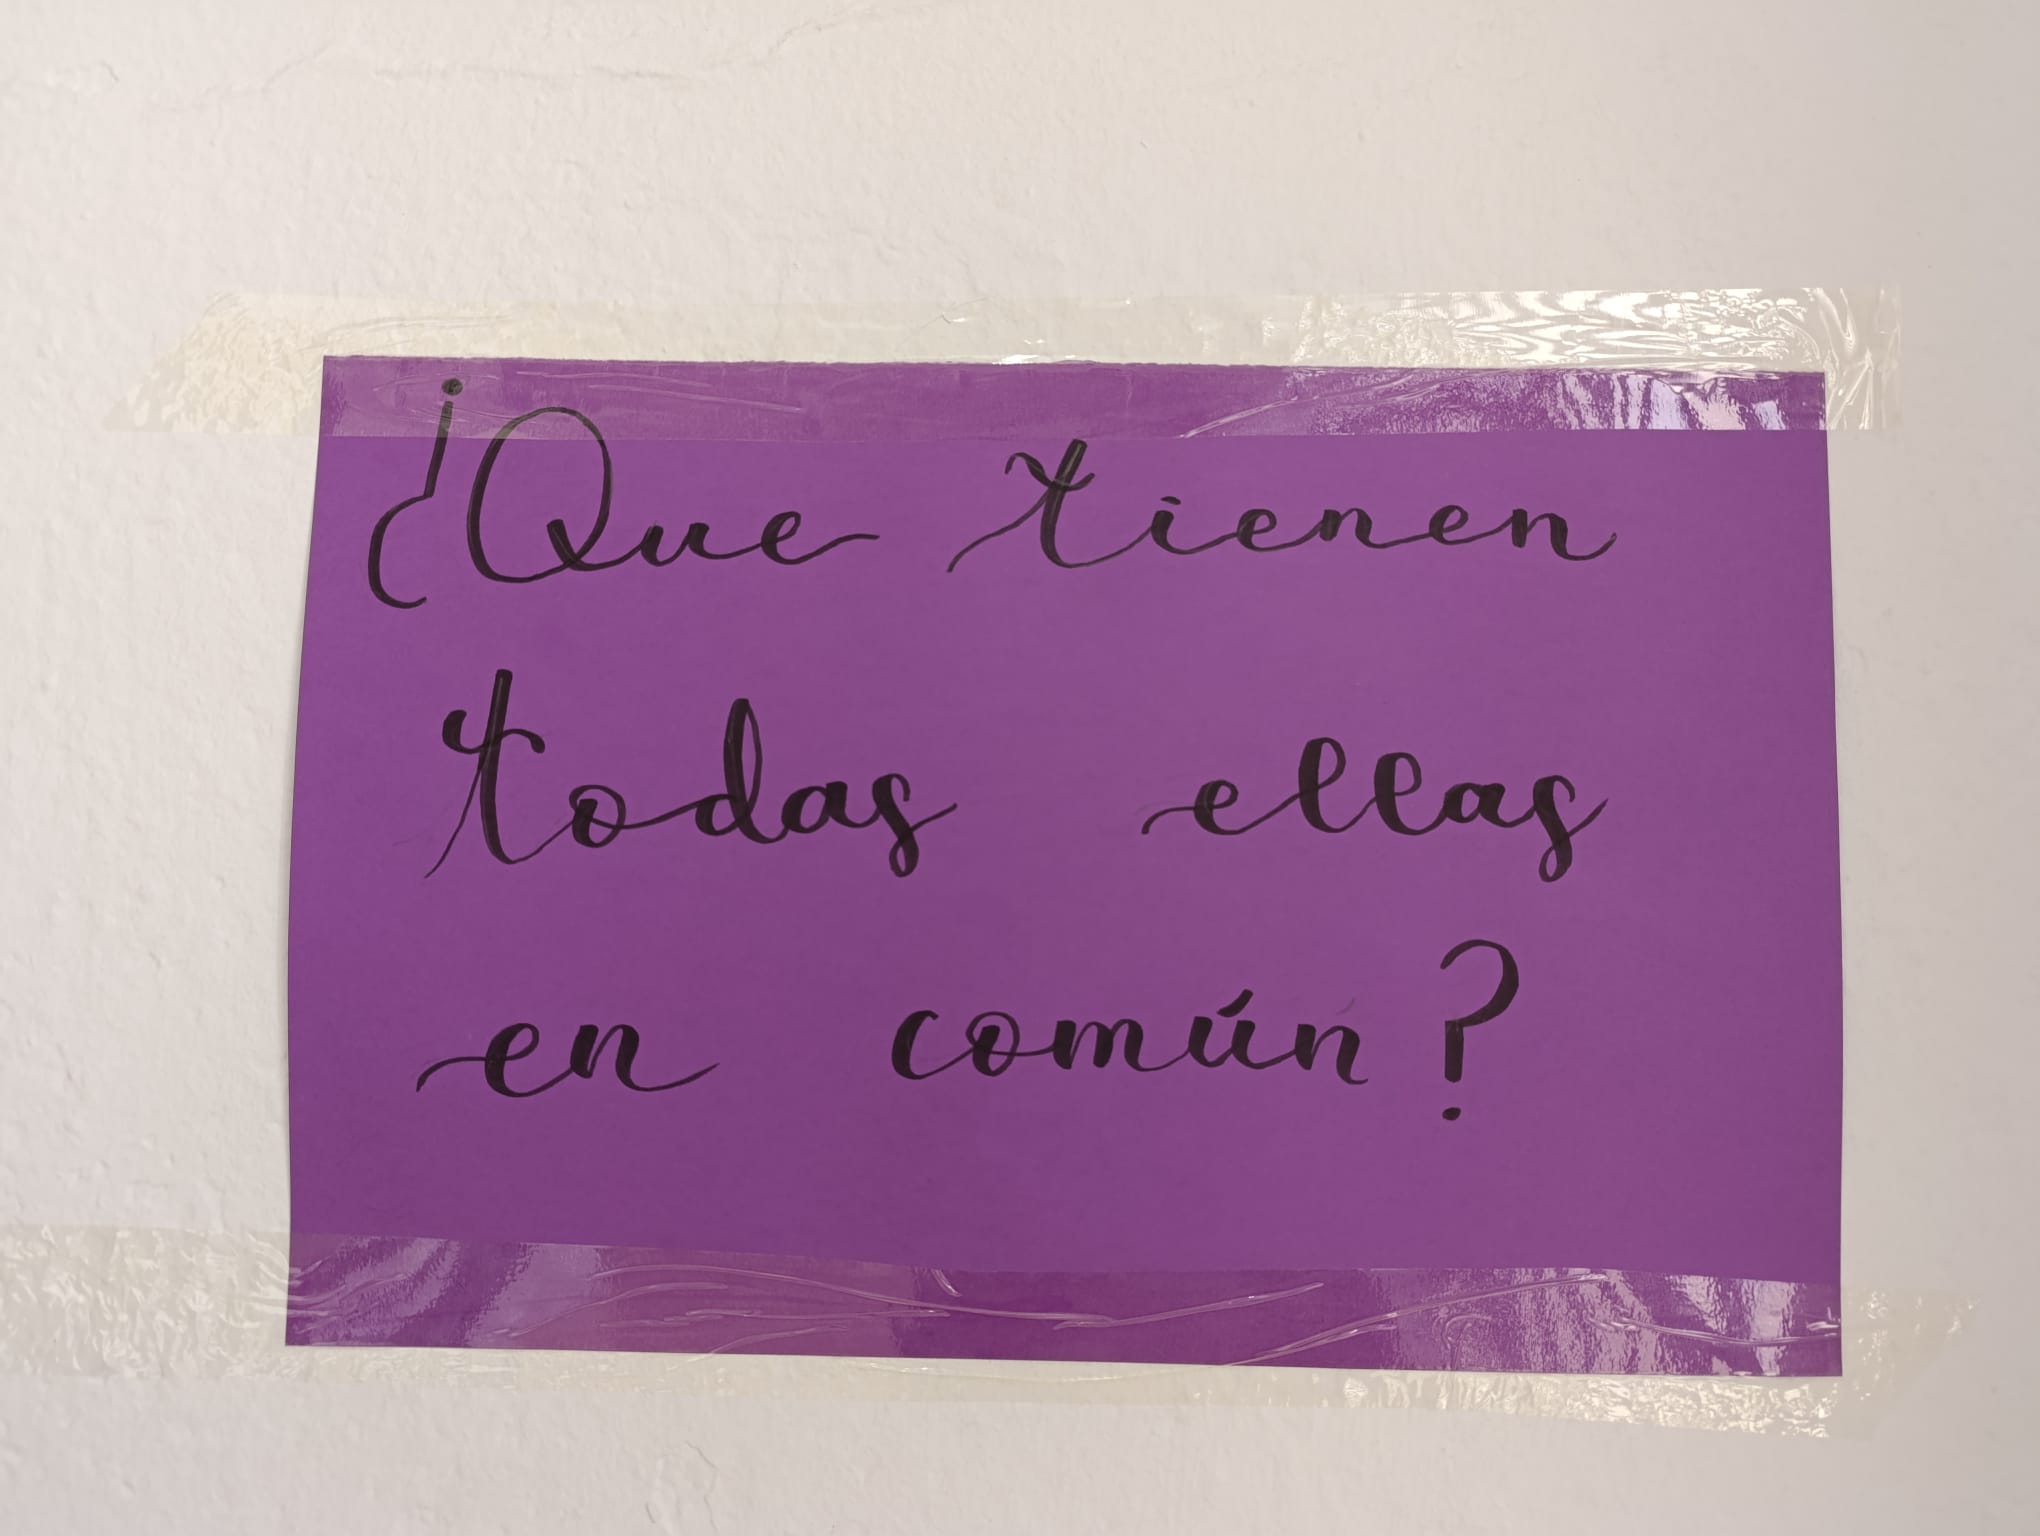 ¿Que tienen
todas ellas
en común?